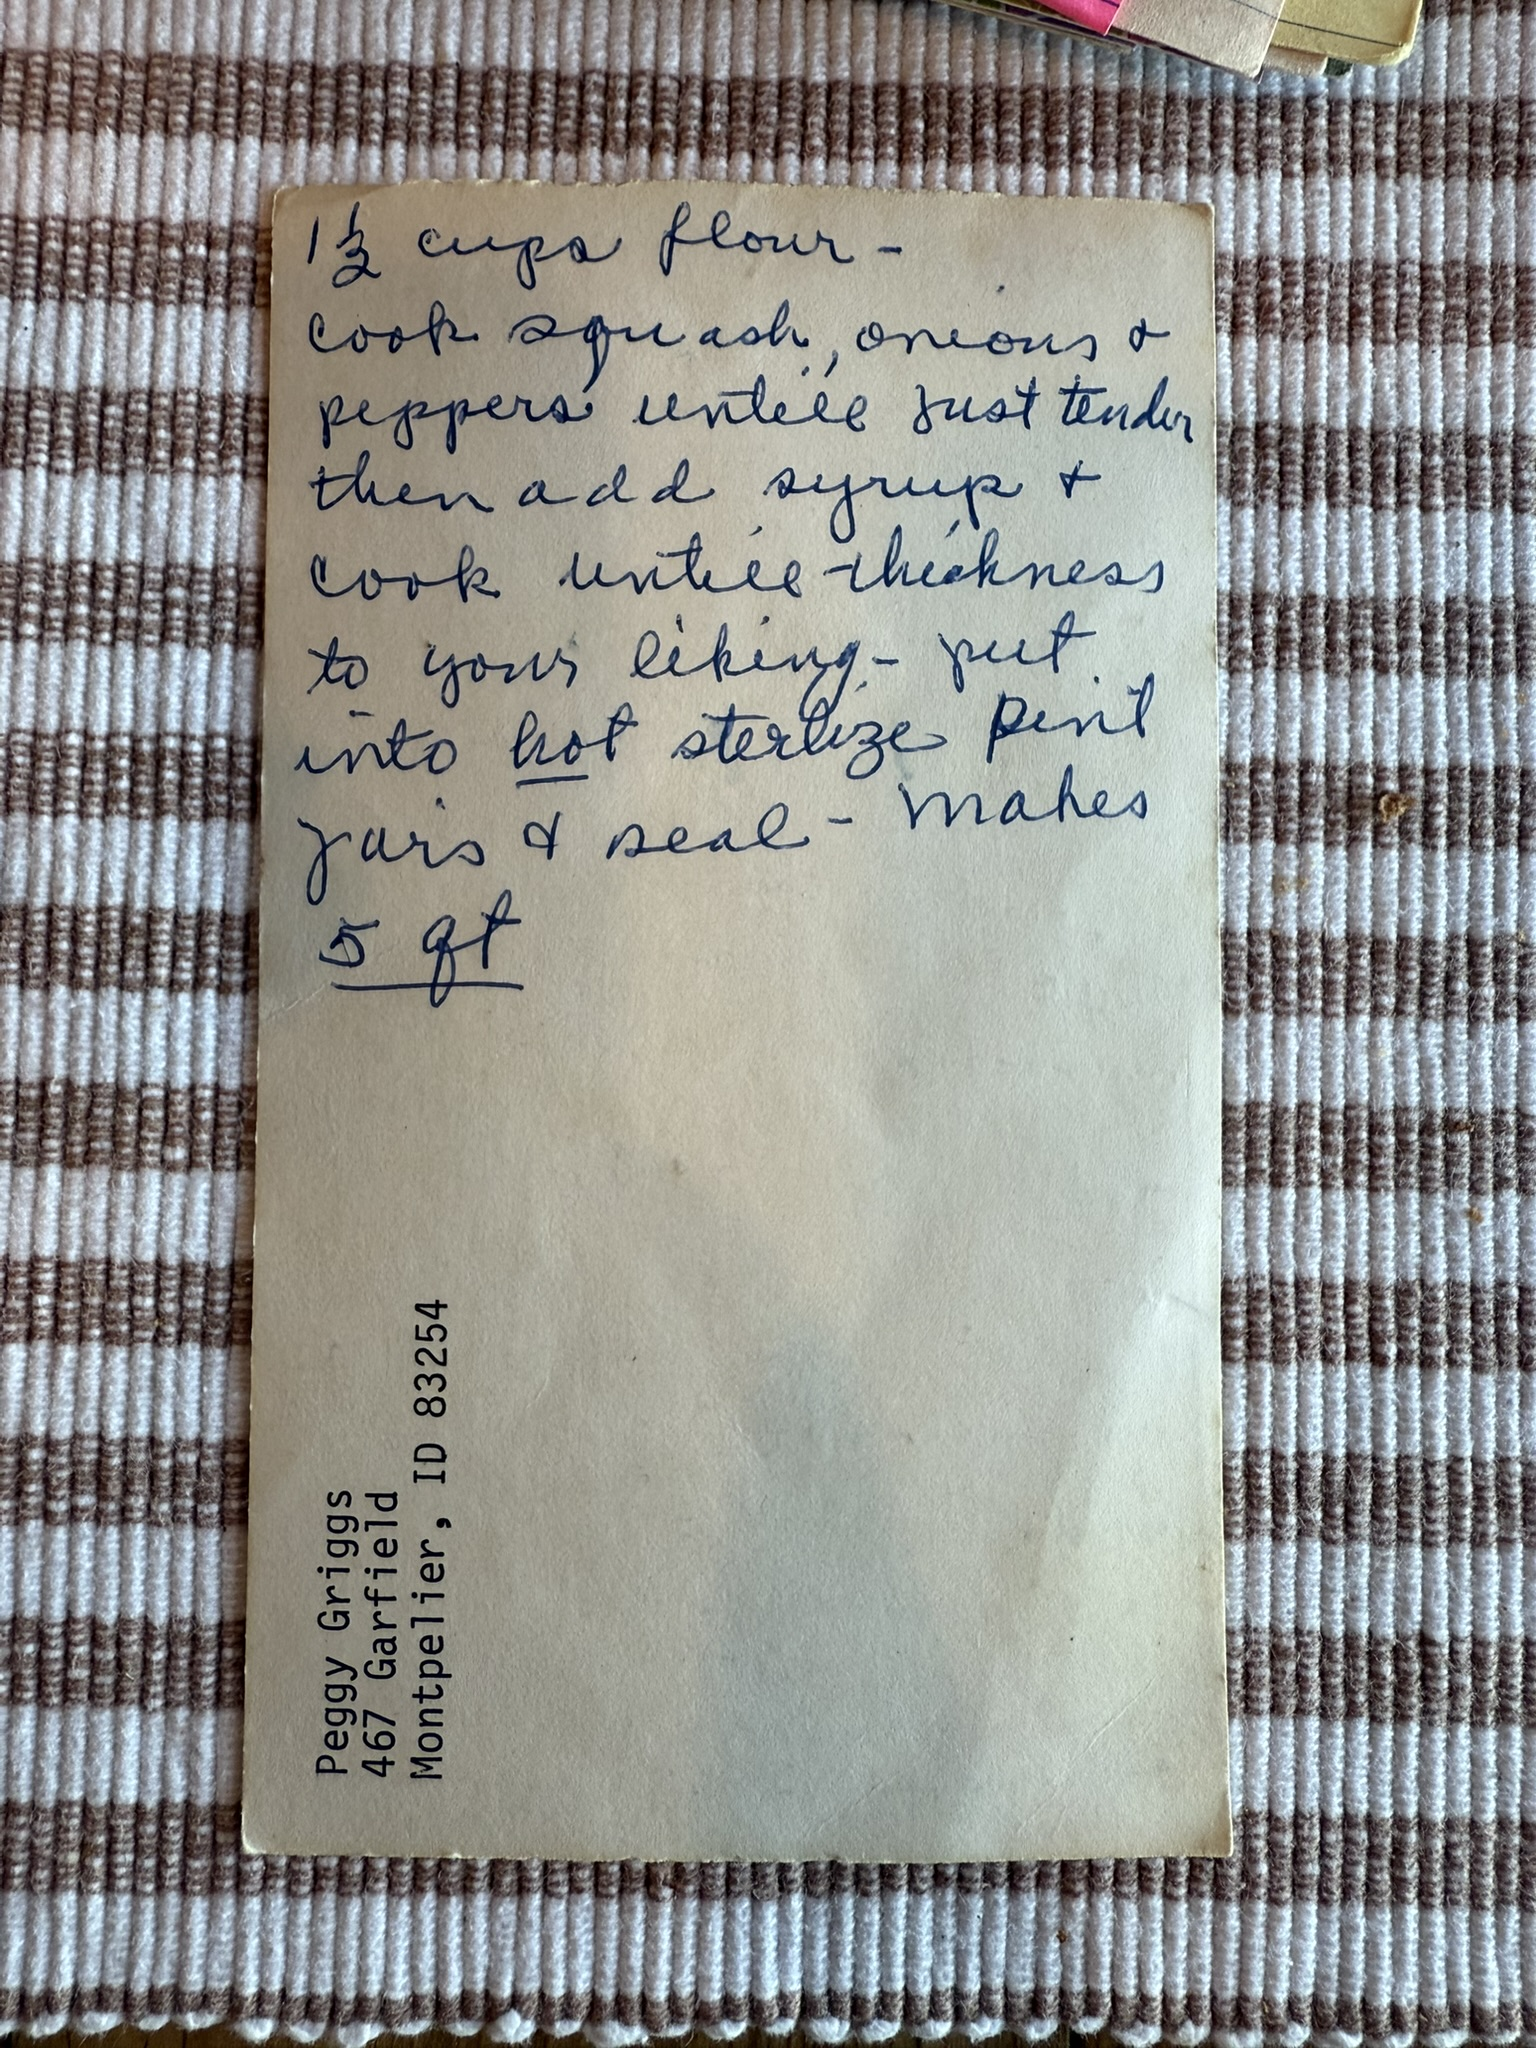 1 1/2 cups flour -
cook squash, onions &
peppers untill just tender
then add syrup &
cook untill thickness
to your liking - put
into hot sterlize pint
jars & seal - Makes
5 qt
Peggy Griggs
467 Garfield
Montpelier, ID 83254